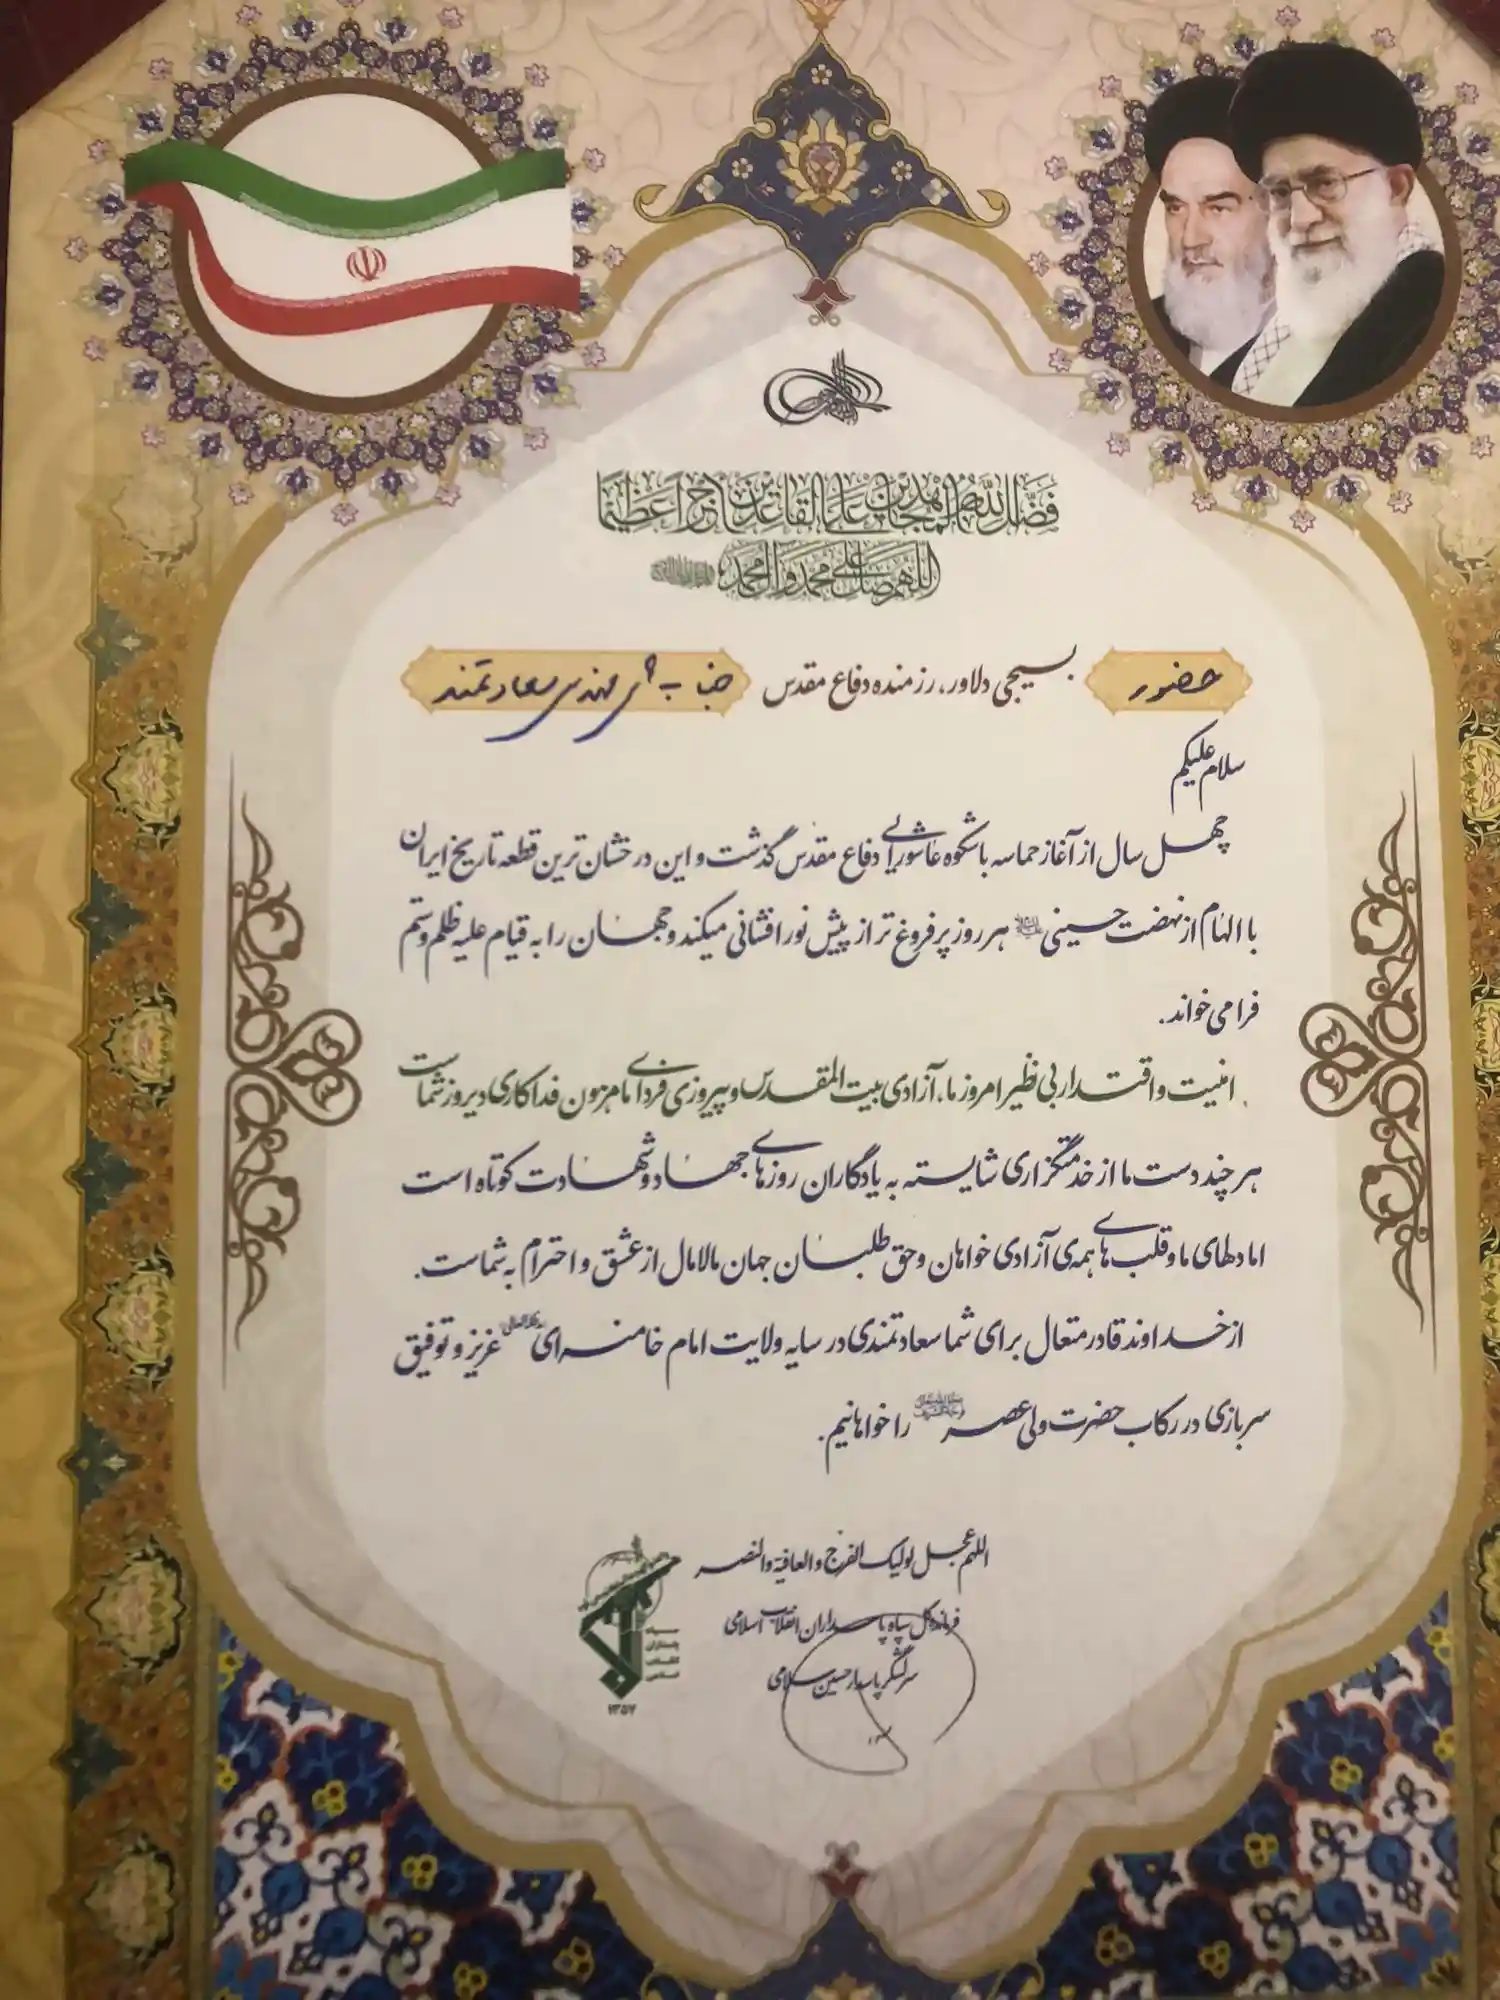 فضل الله المجاهدین علی القاعدین اجرا عظیما
اللهم صل علی محمد و آل محمد
حضور بسیجی دلاور، رزمنده دفاع مقدس جناب آقای مهندس سعادتمند
سلام علیکم
چهل سال از آغاز حماسه باشکوه عاشورایی دفاع مقدس گذشت و این درخشان ترین قطعه تاریخ ایران
با الهام از نهضت حسینی هر روز پرفروغ تر از پیش نورافشانی میکند و جهان را به قیام علیه ظلم و ستم
فرا می خواند.
امنیت و اقتدار بی نظیر امروز ما، آزادی بیت المقدس و پیروزی فردای ما مرهون فداکاری دیروز شماست
هر چند دست ما از خدمتگزاری شایسته به یادگاران روزهای جهاد و شهادت کوتاه است
اما دلهای ما و قلب های همه ی آزادی خواهان و حق طلبان جهان مالامال از عشق و احترام به شماست.
از خداوند قادر متعال برای شما سعادتمندی در سایه ولایت امام خامنه ای مدظله العالی عزیز و توفیق
سربازی در رکاب حضرت ولی عصر را خواهانیم.
اللهم عجل لولیک الفرج والعافیة والنصر
فرمانده کل سپاه پاسداران انقلاب اسلامی
سرلشگر پاسدار حسین سلامی
سپاه
پاسداران
انقلاب
اسلامی
۱۳۵۷